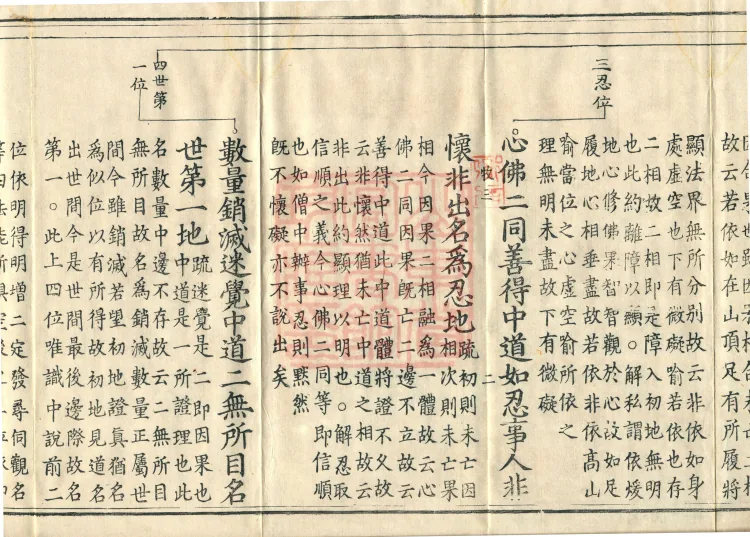 故云若依如在山頂足有所履將
顯法界無所分別故云非依如身
處虛空也下有微礙喻若依也存
二相奴二相即是障入初地無明
也此約離障以顯。解私謂依煖
地心修佛果智智觀於心設如足
履地心相垂盡故若依非依髙山
喻當位之心虛空喻所依之
理無明未盡故下有微礙
三忍位
心佛二同善得中道如忍事人非
二
懷非出名為忍地
疏初則未亡因
相次則未亡果
相今因果二相融為一體故云心
佛二同因果既亡二邊不立故云
善得中道此中道體將證不久故
云非懷然猶未亡中道之相故云
非出此約顯理以明也。解忍取
信順之義今心佛二同等即信順
也如僧中辦事忍則黙然
既不懷礙亦不說出矣
四世第
一位
數量銷滅迷覺中道二無所目名
世第一地
疏迷覺是二即因果也
中道是一所證理也此
名數量中邊不存故云二無所目
無所目故名為銷滅數量正屬世
間今雖銷滅若望初地證真猶名
為似位以有所得故初地見道名
出世間今是世間最後邊際故名
第一。此上四位唯識中說前二
位依明得明增二定發尋伺觀名